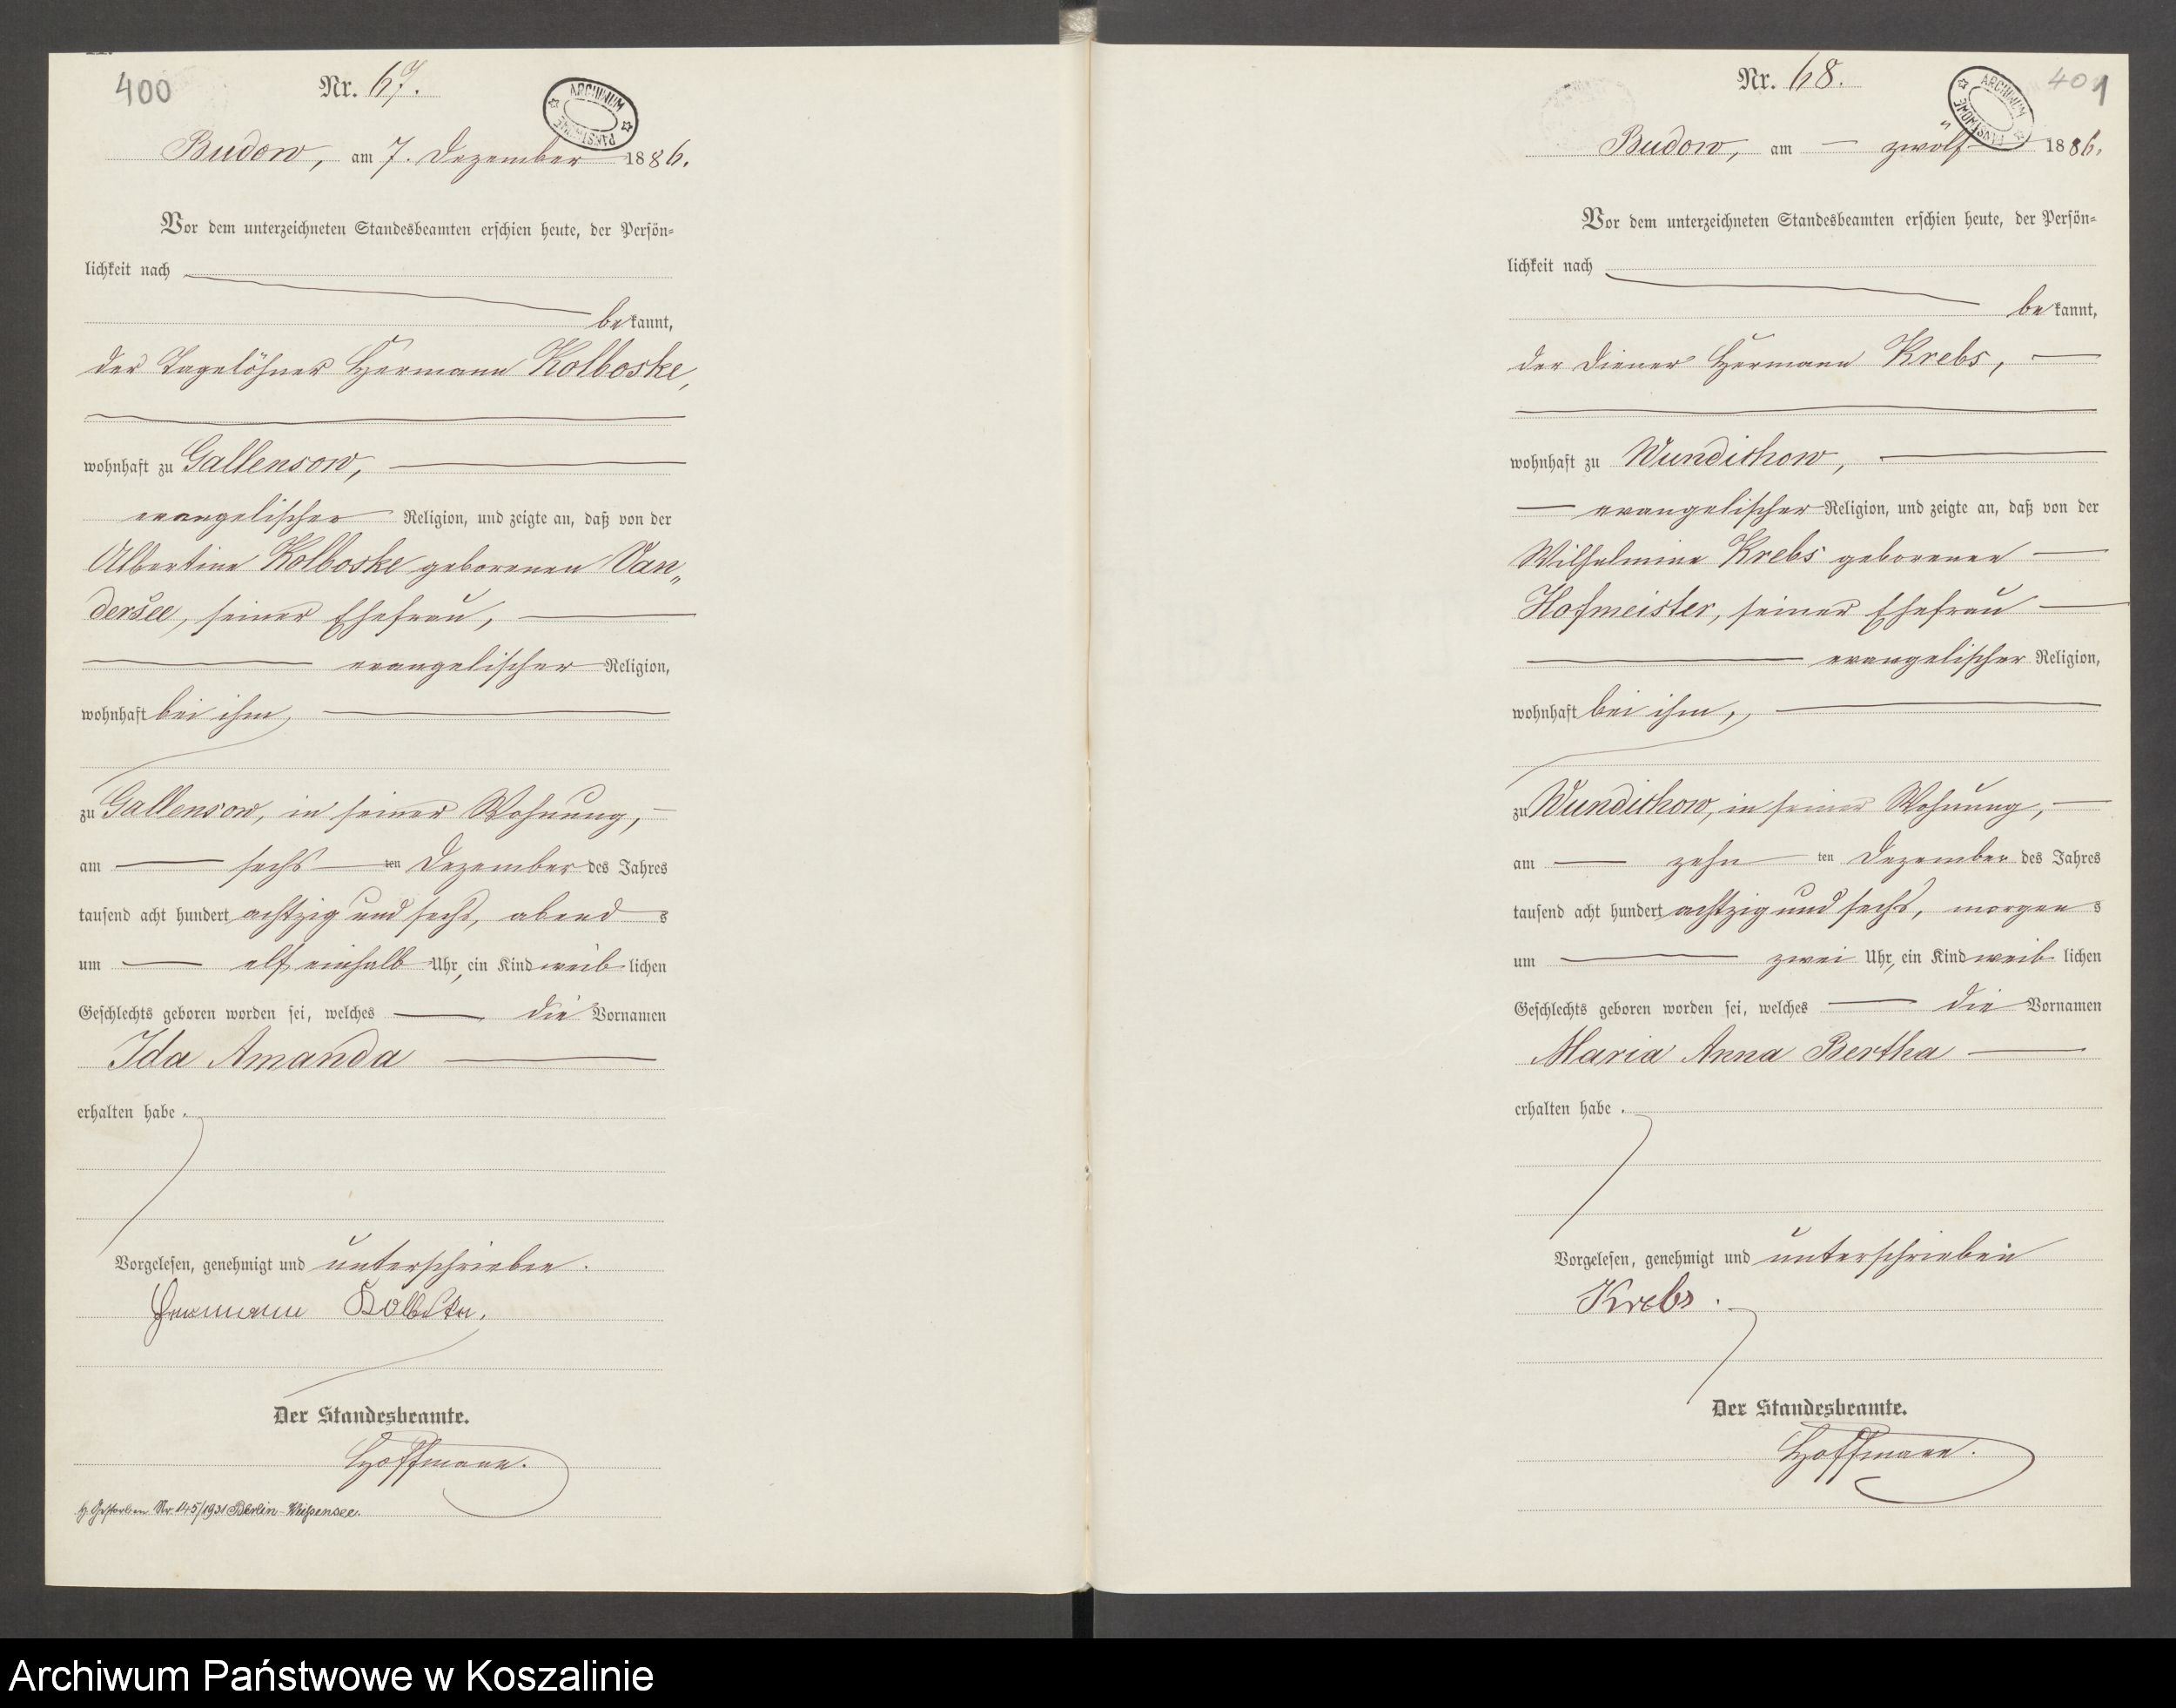 400
Nr. 67.
ARCHIWUM PAŃSTWOWE
Budow, am 7. Dezember 1886.
Vor dem unterzeichneten Standesbeamten erschien heute, der Persön=
lichkeit nach
bekannt,
der Tagelöhner Hermann Kolboske,
wohnhaft zu Gallensow,
evangelischer Religion, und zeigte an, daß von der
Albertine Kolboske geborenen Van„
dersee, seiner Ehefrau,
evangelischer Religion,
wohnhaft bei ihm,
zu Gallensow, in seiner Wohnung,
am sechsten Dezember des Jahres
tausend acht hundert achtzig und sechs, abends
um elf einhalb Uhr, ein Kind weiblichen
Geschlechts geboren worden sei, welches die Vornamen
Ida Amanda
erhalten habe.
Vorgelesen, genehmigt und unterschrieben.
Hermann Kolboske.
Der Standesbeamte.
Hoffmann.
Gestorben Nr. 145/1931 Berlin-Weißensee.
Nr. 68.
ARCHIWUM PAŃSTWOWE
401
Budow, am zwölf 1886.
Vor dem unterzeichneten Standesbeamten erschien heute, der Persön=
lichkeit nach
bekannt,
der Diener Hermann Krebs,
wohnhaft zu Wundichow,
evangelischer Religion, und zeigte an, daß von der
Wilhelmine Krebs geborenen
Hofmeister, seiner Ehefrau
evangelischer Religion,
wohnhaft bei ihm,
zu Wundichow, in seiner Wohnung,
am zehnten Dezember des Jahres
tausend acht hundert achtzig und sechs, morgens
um zwei Uhr, ein Kind weiblichen
Geschlechts geboren worden sei, welches die Vornamen
Maria Anna Bertha
erhalten habe.
Vorgelesen, genehmigt und unterschrieben
Krebs.
Der Standesbeamte.
Hoffmann.
Archiwum Państwowe w Koszalinie